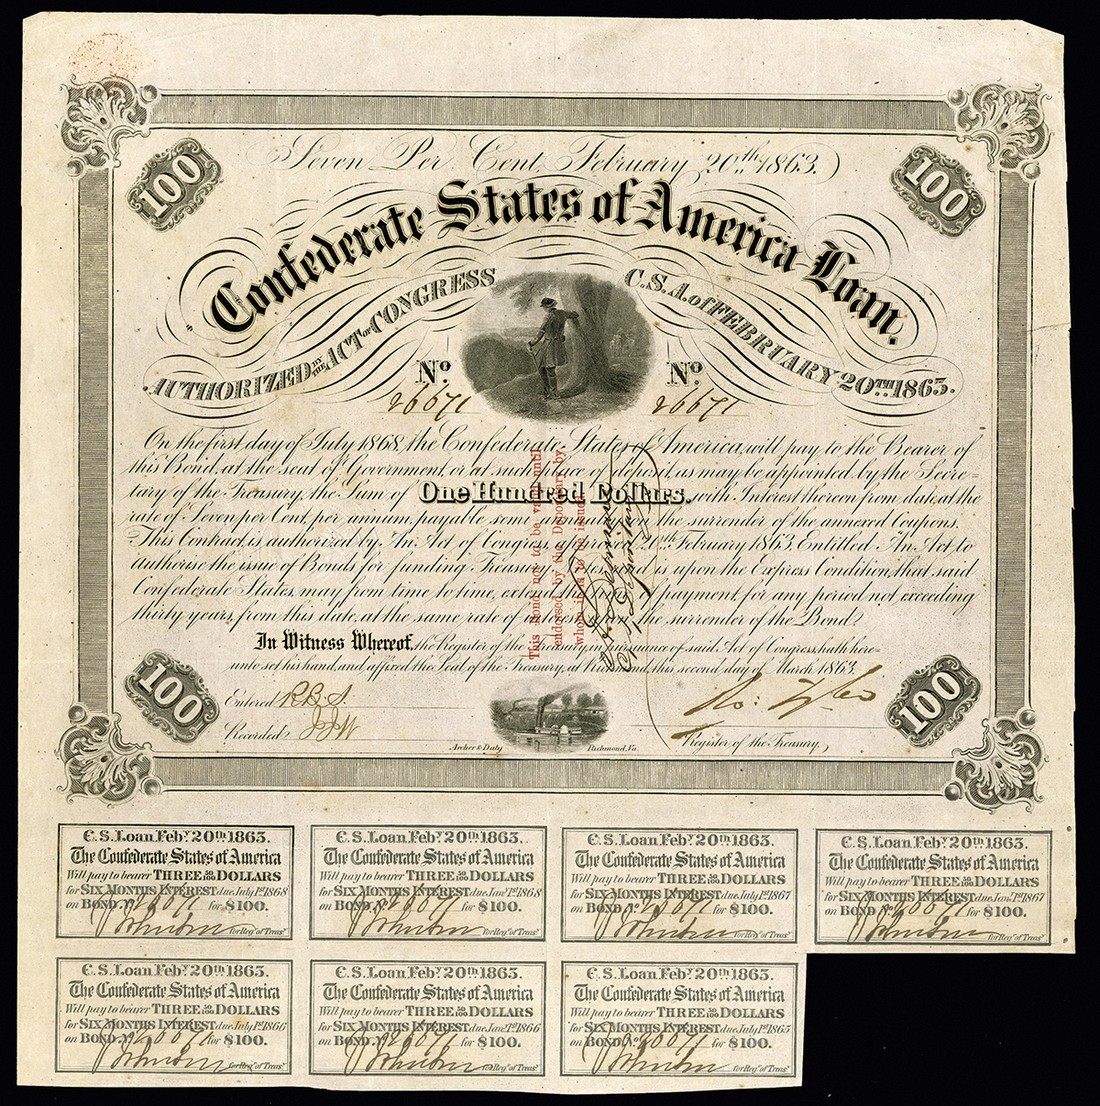 100
100
Seven Per Cent, February 20th 1863.
Confederate States of America Loan.
AUTHORIZED BY THE ACT OF CONGRESS C.S.A. of FEBRUARY 20TH 1863.
No. No.
26671 26671
On the first day of July 1868, the Confederate States of America, will pay to the Bearer of
this Bond, at the seat of Government, or at such place of deposit, as may be appointed by the Secre-
tary of the Treasury, the Sum of One Hundred Dollars. with Interest thereon from date, at the
rate of Seven per Cent, per annum, payable semi annually on the surrender of the annexed Coupons.
This Contract, is authorized by An Act of Congress, approved 20th February 1863, Entitled An Act to
authorise the issue of Bonds for funding Treasury and is upon the Express Condition, that said
Confederate States, may from time to time, extend the payment, for any period not exceeding
thirty years, from this date, at the same rate of interest, on the surrender of the Bond.
In Witness Whereof, the Register of the Treasury, in pursuance of said Act of Congress, hath here-
unto set his hand, and affixed the Seal of the Treasury, at Richmond, this second day of March 1863.
This Bond not to be valid until
endorsed by the Depositary by
whom it is to be issued.
100
100
Entered R.B.S.
Recorded J.J.W
Archer & Daly Richmond, Va.
Register of the Treasury,
C.S. Loan Feby 20th 1863.
The Confederate States of America
Will pay to bearer THREE 50/100 DOLLARS
for SIX MONTHS INTEREST due July 1st 1868
on BOND No. 26671 for $100.
for Regr of Treasy
C.S. Loan Feby 20th 1863.
The Confederate States of America
Will pay to bearer THREE 50/100 DOLLARS
for SIX MONTHS INTEREST due Jan 1st 1868
on BOND No. 26671 for $100.
for Regr of Treasy
C.S. Loan Feby 20th 1863.
The Confederate States of America
Will pay to bearer THREE 50/100 DOLLARS
for SIX MONTHS INTEREST due July 1st 1867
on BOND No. 26671 for $100.
for Regr of Treasy
C.S. Loan Feby 20th 1863.
The Confederate States of America
Will pay to bearer THREE 50/100 DOLLARS
for SIX MONTHS INTEREST due Jan 1st 1867
on BOND No. 26671 for $100.
for Regr of Treasy
C.S. Loan Feby 20th 1863.
The Confederate States of America
Will pay to bearer THREE 50/100 DOLLARS
for SIX MONTHS INTEREST due July 1st 1866
on BOND No. 26671 for $100.
for Regr of Treasy
C.S. Loan Feby 20th 1863.
The Confederate States of America
Will pay to bearer THREE 50/100 DOLLARS
for SIX MONTHS INTEREST due Jan 1st 1866
on BOND No. 26671 for $100.
for Regr of Treasy
C.S. Loan Feby 20th 1863.
The Confederate States of America
Will pay to bearer THREE 50/100 DOLLARS
for SIX MONTHS INTEREST due July 1st 1865
on BOND No. 26671 for $100.
for Regr of Treasy